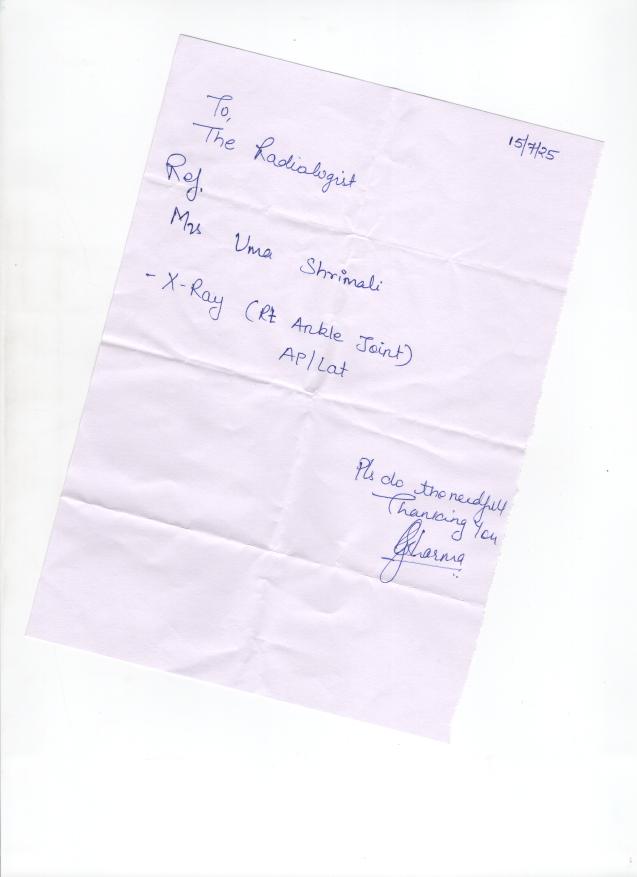 15/7/25
To,
The Radiologist
Ref.
Mrs Uma Shrimali
- X-Ray (Rt Ankle Joint)
AP/Lat
Pls do the needful
Thanking You
Sharma